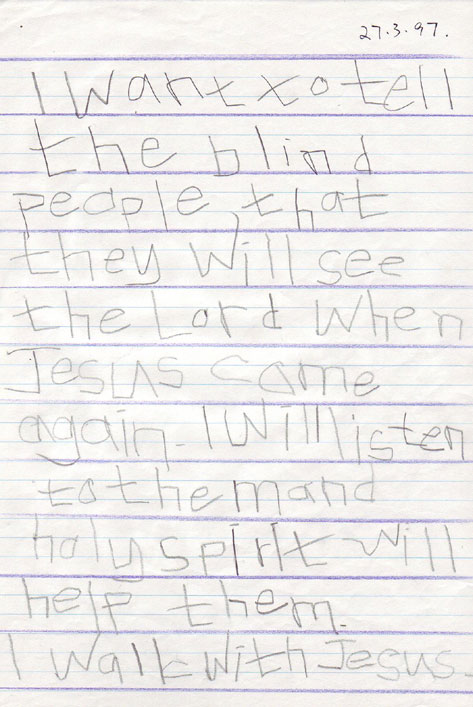 27.3.97.
I Want to tell
the blind
people, that
they will see
the Lord When
Jesus came
again. I Will listen
to them and
holy spirit will
help them.
I walk with Jesus.